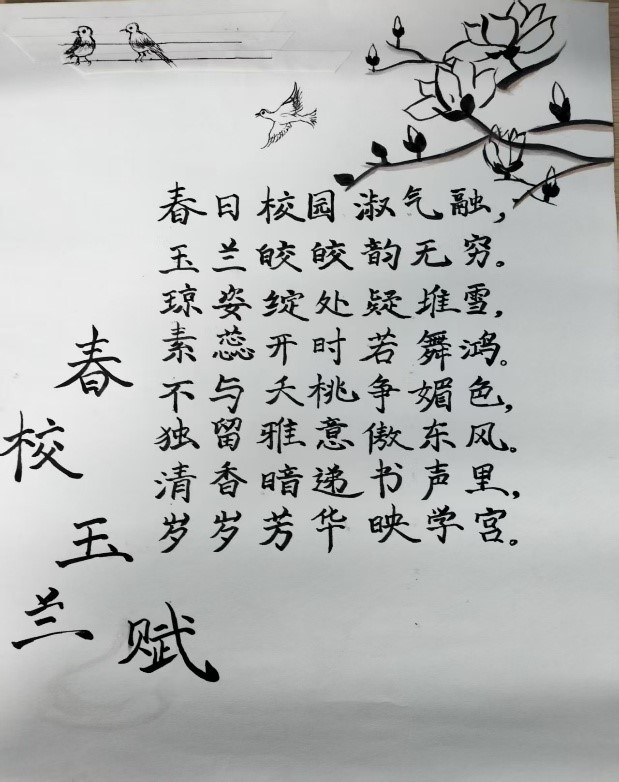 春校玉兰赋
春日校园淑气融，
玉兰皎皎韵无穷。
琼姿绽处疑堆雪，
素蕊开时若舞鸿。
不与夭桃争媚色，
独留雅意傲东风。
清香暗递书声里，
岁岁芳华映学宫。